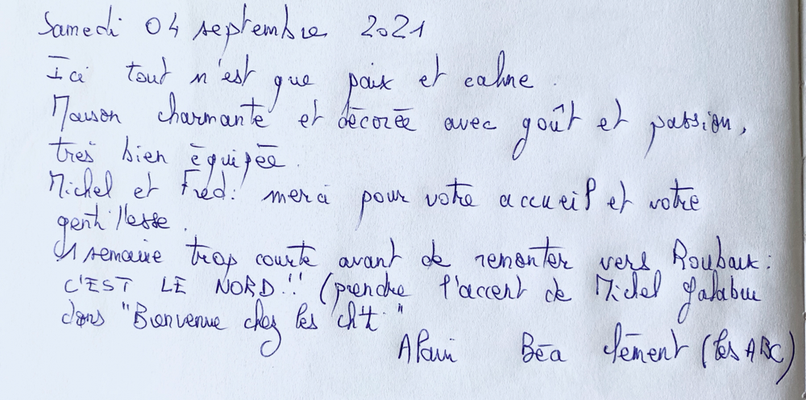 Samedi 04 septembre 2021
Ici tout n'est que paix et calme.
Maison charmante et décorée avec goût et passion,
très bien équipée.
Michel et Fred : merci pour votre accueil et votre
gentillesse.
1 semaine trop courte avant de remonter vers Roubaix :
C'EST LE NORD !! (prendre l'accent de Michel Galabru
dans "Bienvenue chez les ch'ti"
Alain Béa Clément (les ABC)